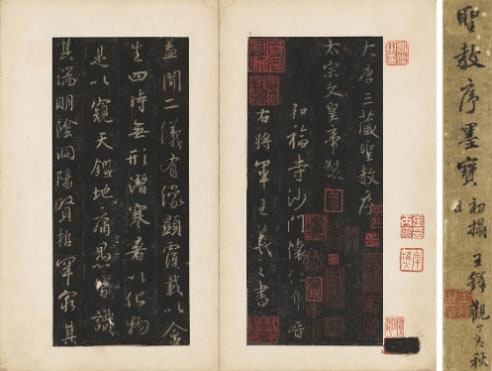 聖教序墨寶 初搨 王鐸觀 丁亥秋
大唐三藏聖教序
太宗文皇帝製
弘福寺沙門懷仁集晉
右將軍王羲之書
蓋聞二儀有像顯覆載以含
生四時無形潛寒暑以化物
是以窺天鑑地庸愚皆識
其端明陰洞陽賢哲罕窮其